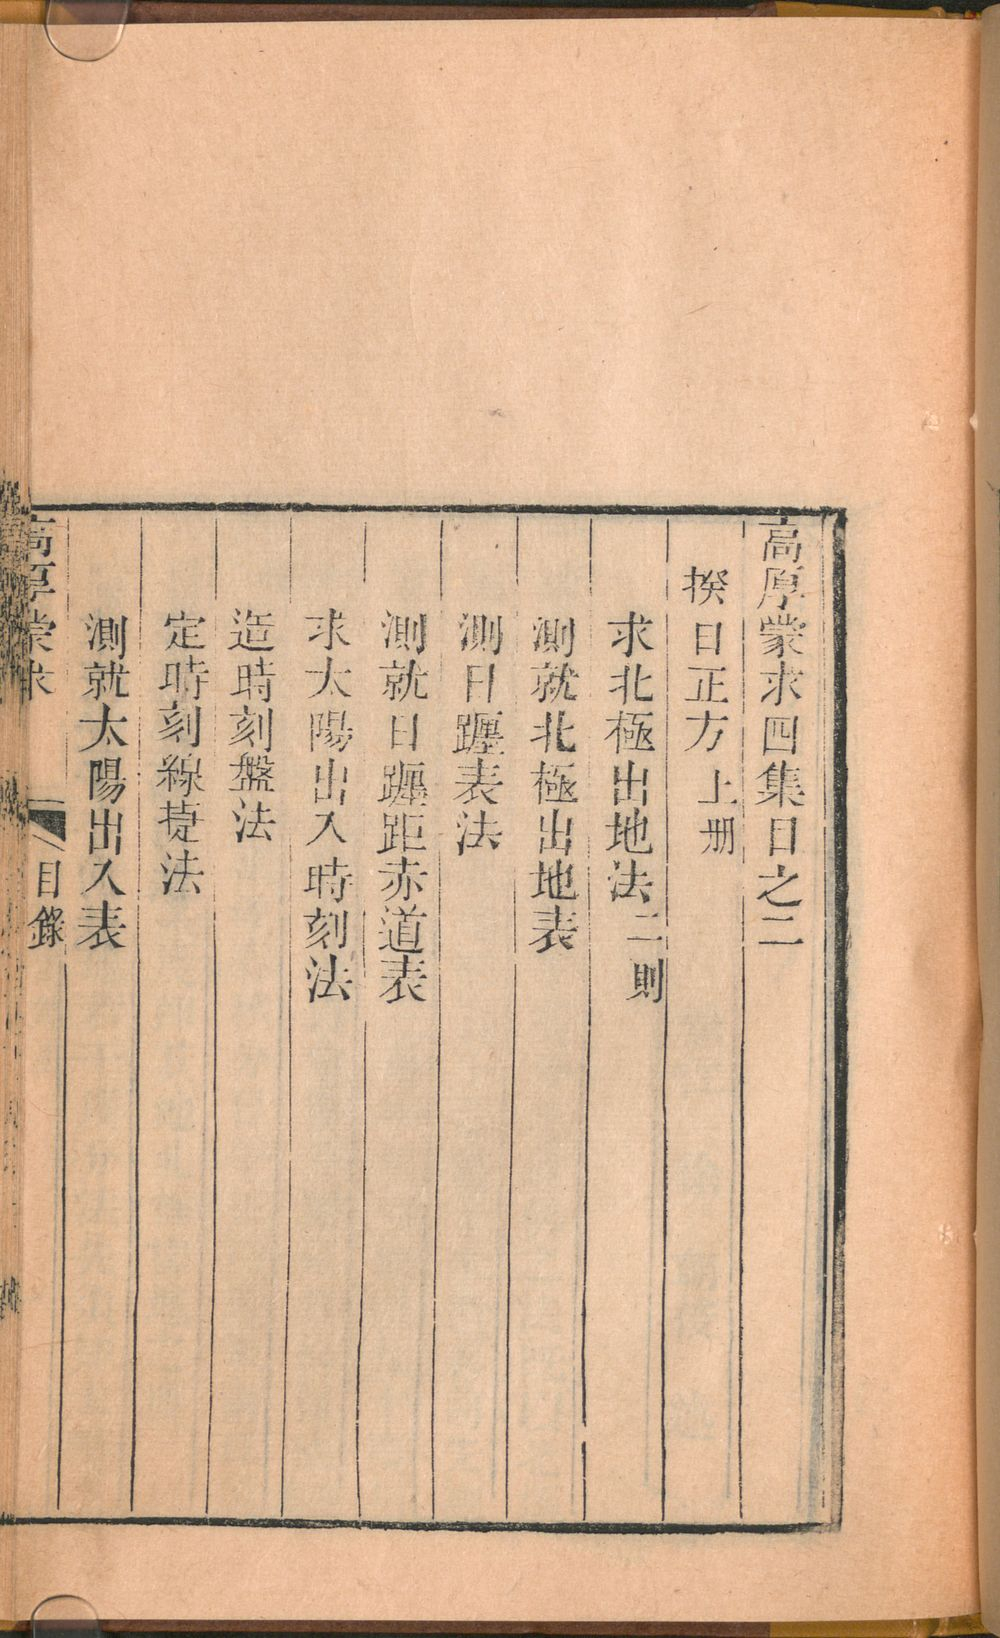 高厚蒙求四集日之二
揆日正方上册
求北極出地法二則
測就北極出地表
測日躔表法
測就日躔距赤道表
求太陽出入時刻法
造時刻盤法
定時刻線捷法
測就太陽出入表
高厚蒙求 目錄